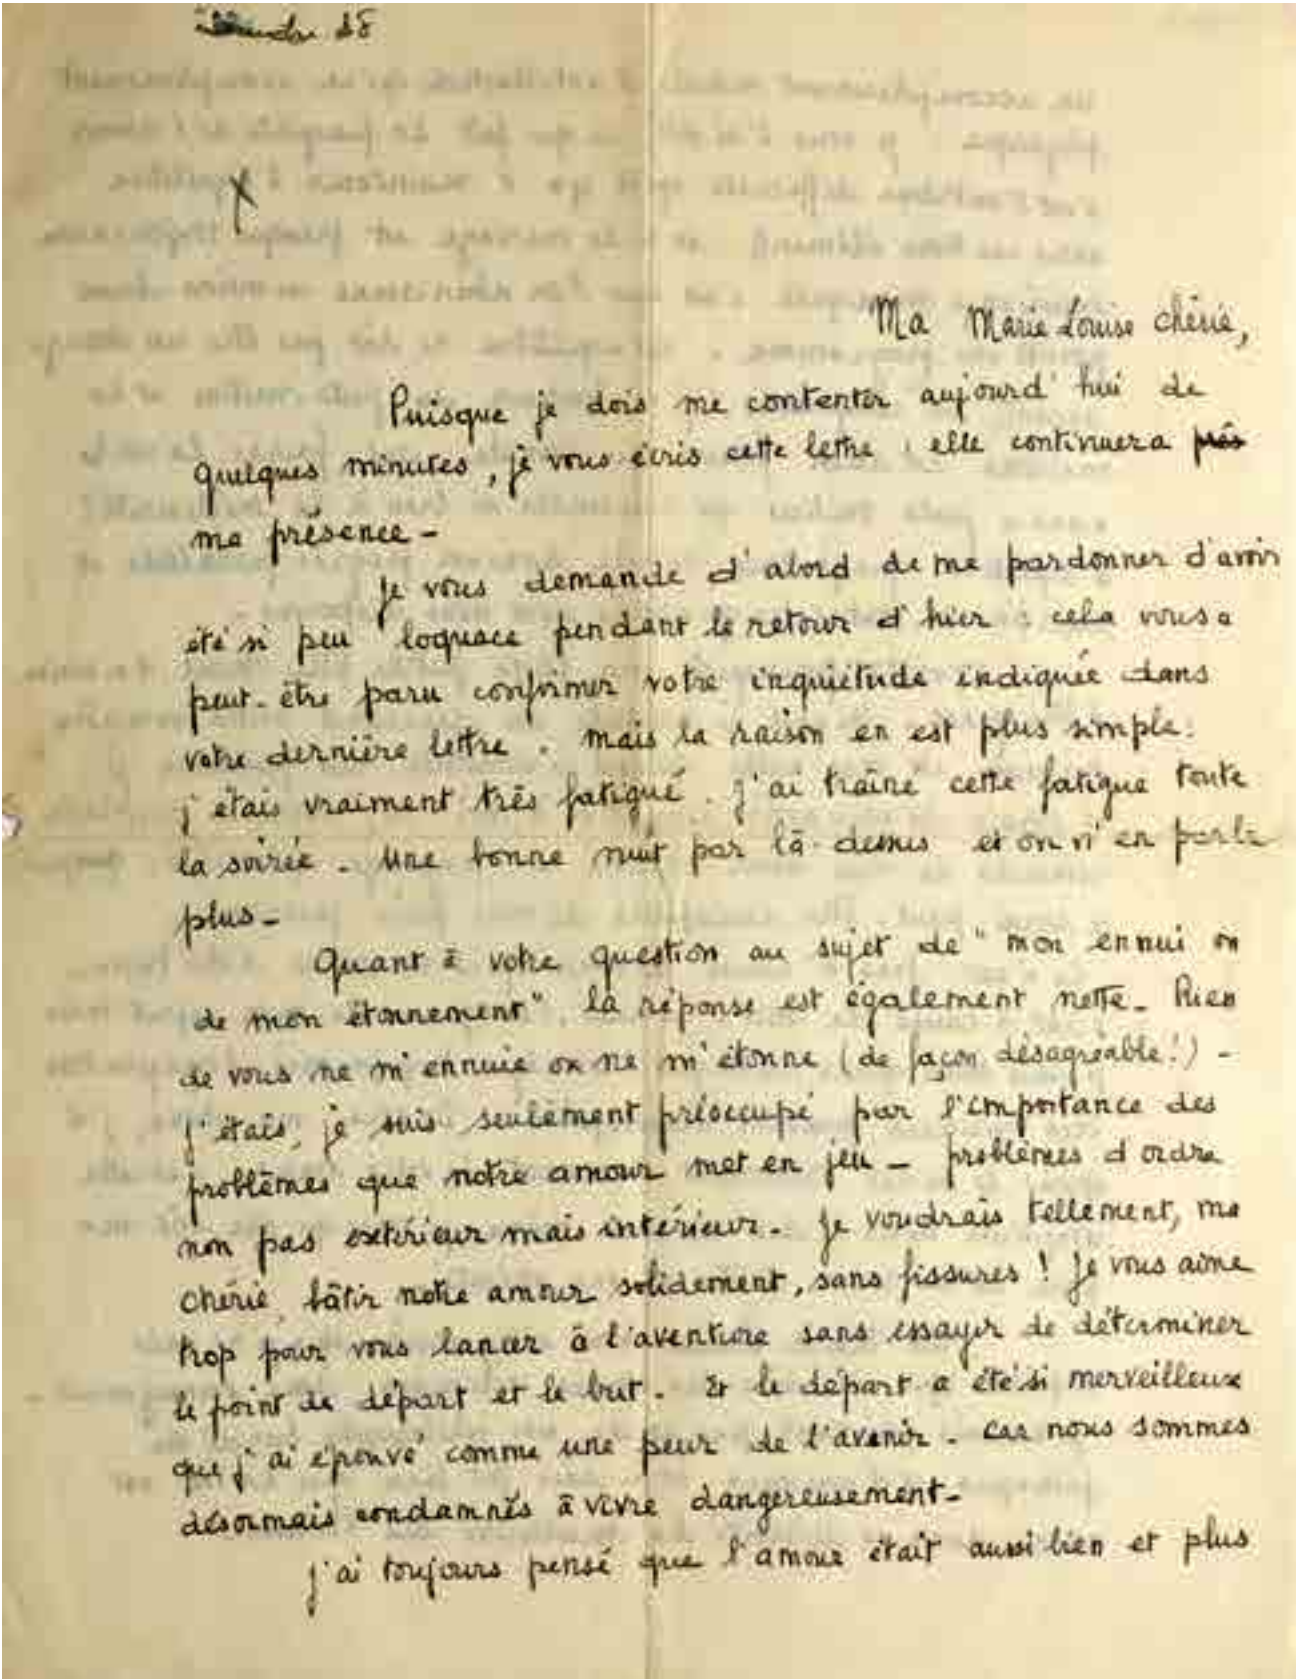 38
Ma Marie Louise chérie,
Puisque je dois me contenter aujourd'hui de
quelques minutes, je vous écris cette lettre : elle continuera près
ma présence -
Je vous demande d'abord de me pardonner d'avoir
été si peu loquace pendant le retour d'hier : cela vous a
peut-être paru confirmer votre inquiétude indiquée dans
votre dernière lettre. Mais la raison en est plus simple :
j'étais vraiment très fatigué. J'ai traîné cette fatigue toute
la soirée. Une bonne nuit par là-dessus et on n'en parle
plus -
Quant à votre question au sujet de "mon ennui ou
de mon étonnement" la réponse est également nette. Rien
de vous ne m'ennuie ou ne m'étonne (de façon désagréable!) -
J'étais, je suis seulement préoccupé par l'importance des
problèmes que notre amour met en jeu - problèmes d'ordre
non pas extérieur mais intérieur. Je voudrais tellement, ma
chérie, bâtir notre amour solidement, sans fissures ! Je vous aime
trop pour vous lancer à l'aventure sans essayer de déterminer
le point de départ et le but. Et le départ a été si merveilleux
que j'ai éprouvé comme une peur de l'avenir. Car nous sommes
désormais condamnés à vivre dangereusement -
J'ai toujours pensé que l'amour était aussi bien et plus